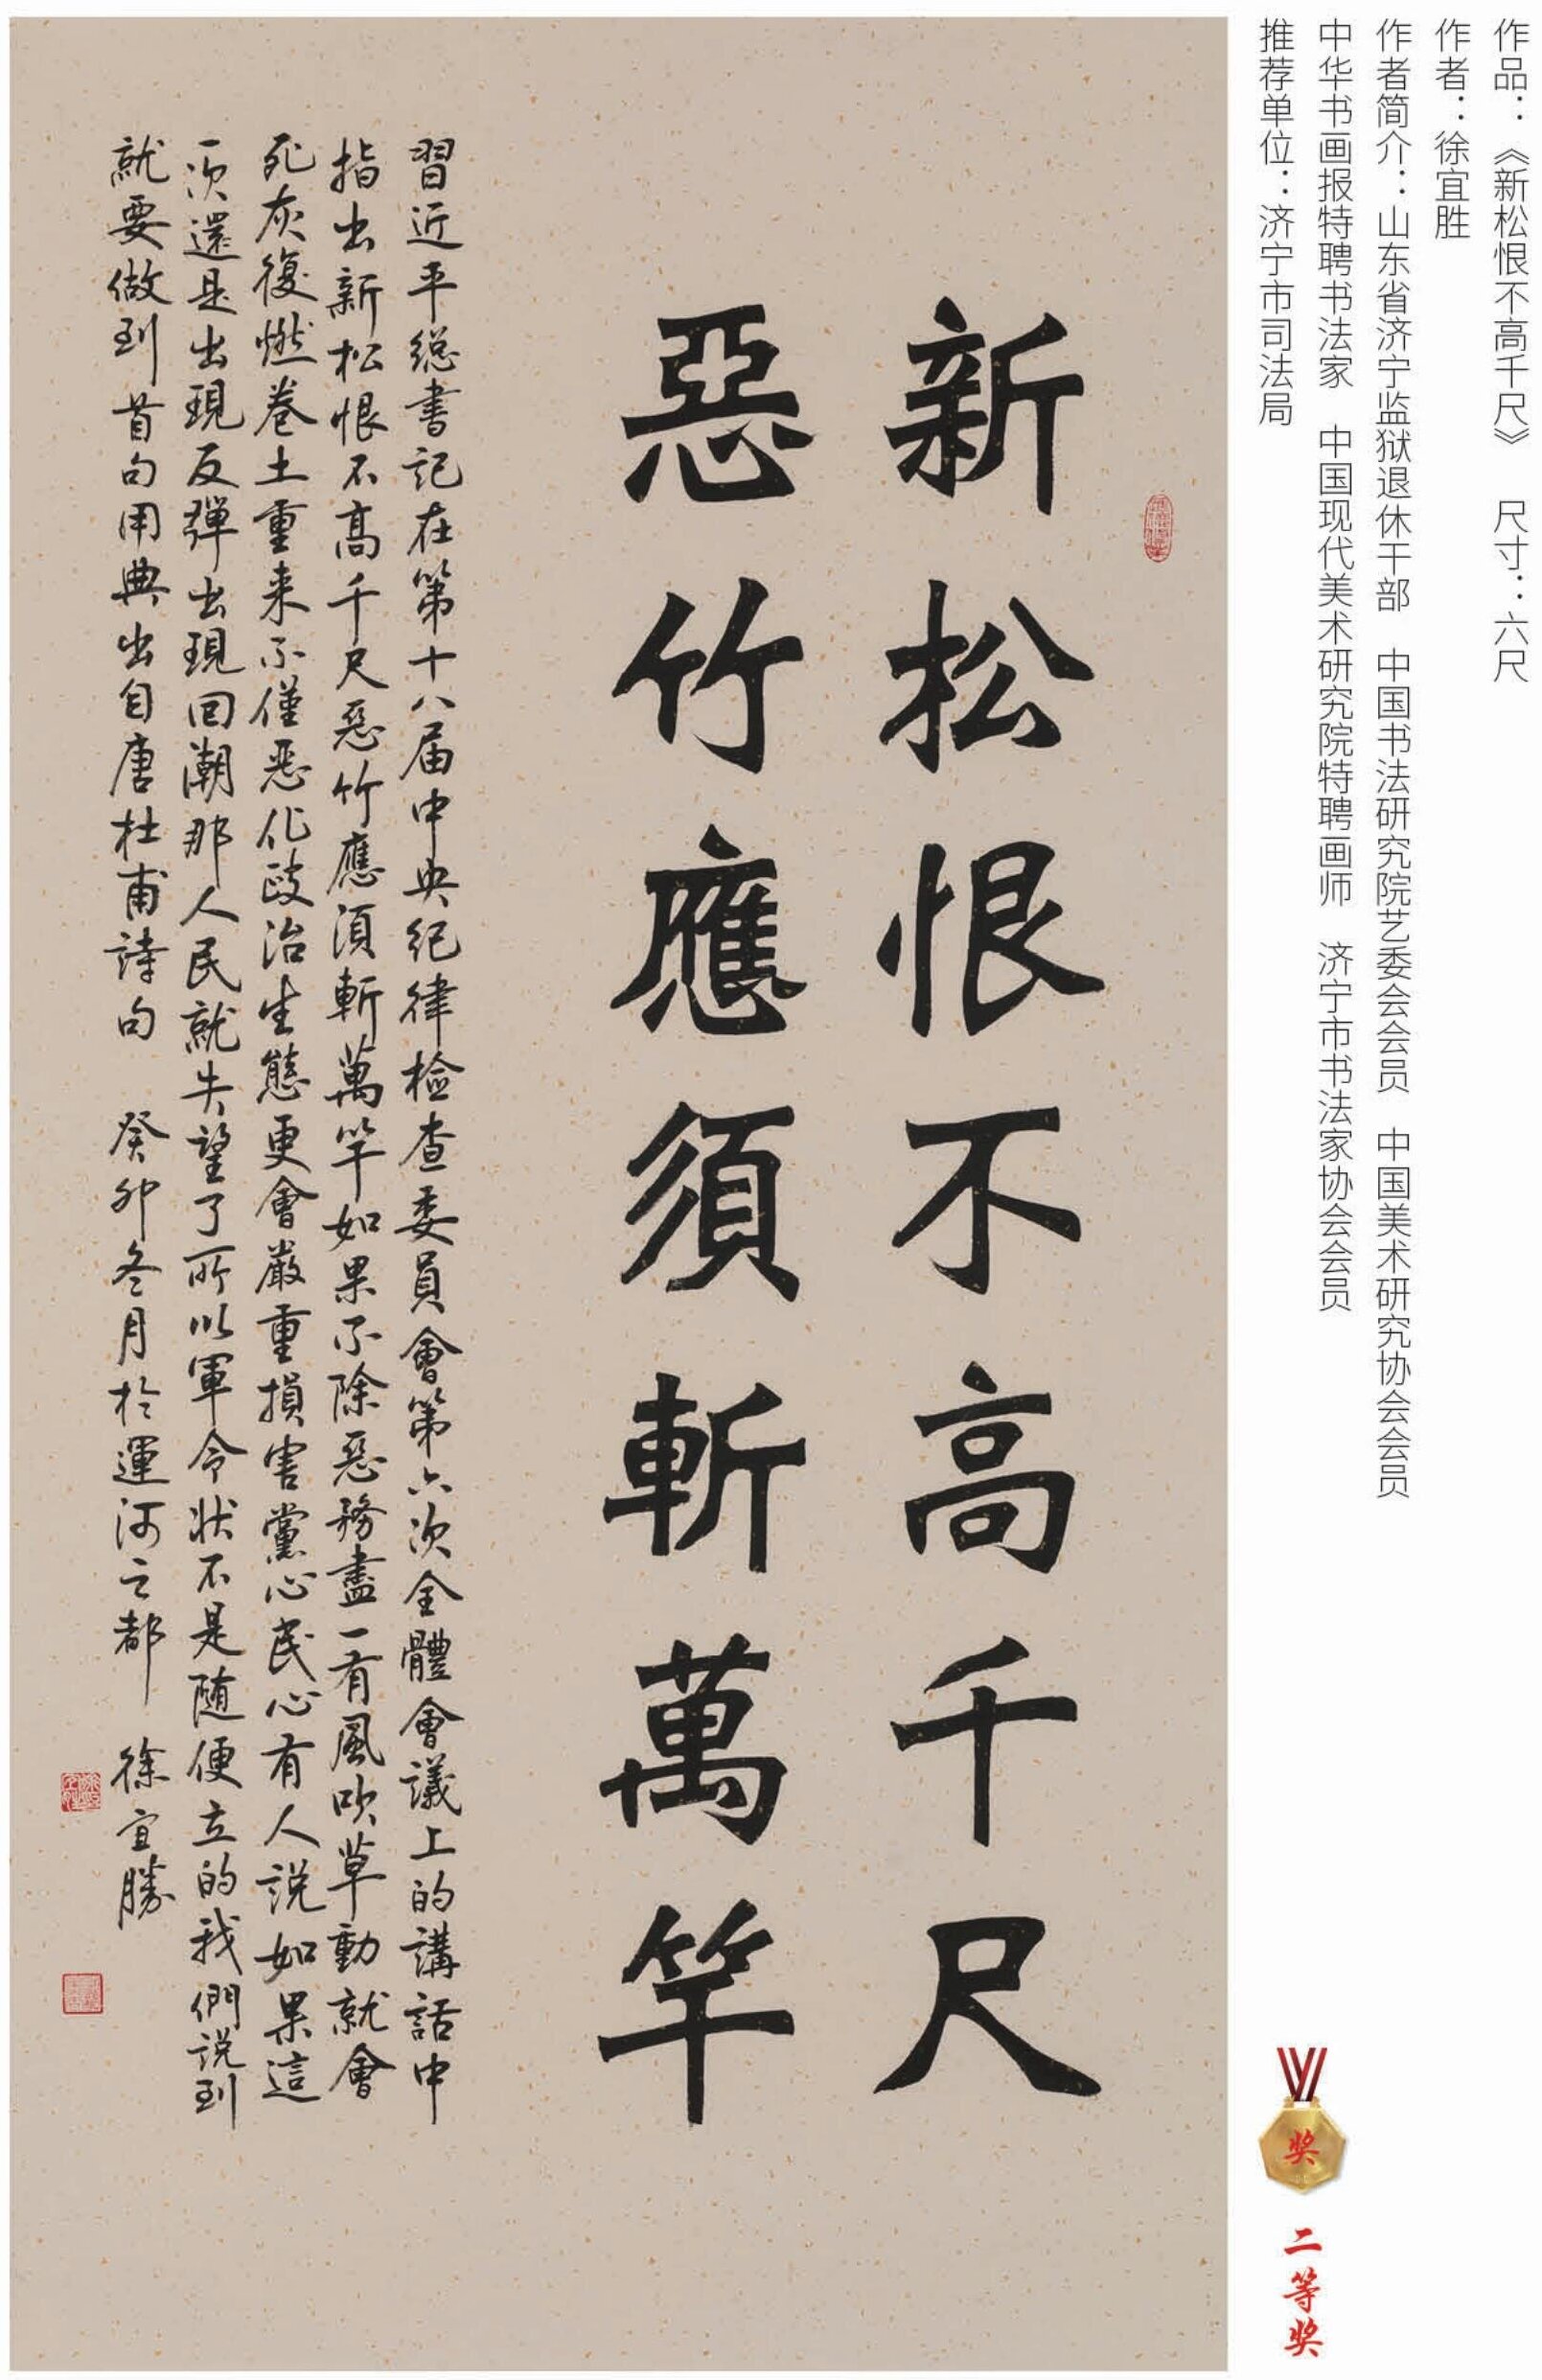 作品：《新松恨不高千尺》　尺寸：六尺
作者：徐宜胜
作者简介：山东省济宁监狱退休干部　中国书法研究院艺委会会员　中国美术研究协会会员
中华书画报特聘书法家　中国现代美术研究院特聘画师　济宁市书法家协会会员
推荐单位：济宁市司法局
奖
二等奖
新松恨不高千尺
惡竹應須斬萬竿
習近平總書記在第十八届中央紀律檢查委員會第六次全體會議上的講話中
指出新松恨不高千尺惡竹應須斬萬竿如果不除惡務盡一有風吹草動就會
死灰復燃卷土重来不僅惡化政治生態更會嚴重損害黨心民心有人説如果這
一次還是出現反彈出現回潮那人民就失望了所以軍令状不是随便立的我們説到
就要做到首句用典出自唐杜甫詩句　癸卯冬月於運河之都　徐宜勝